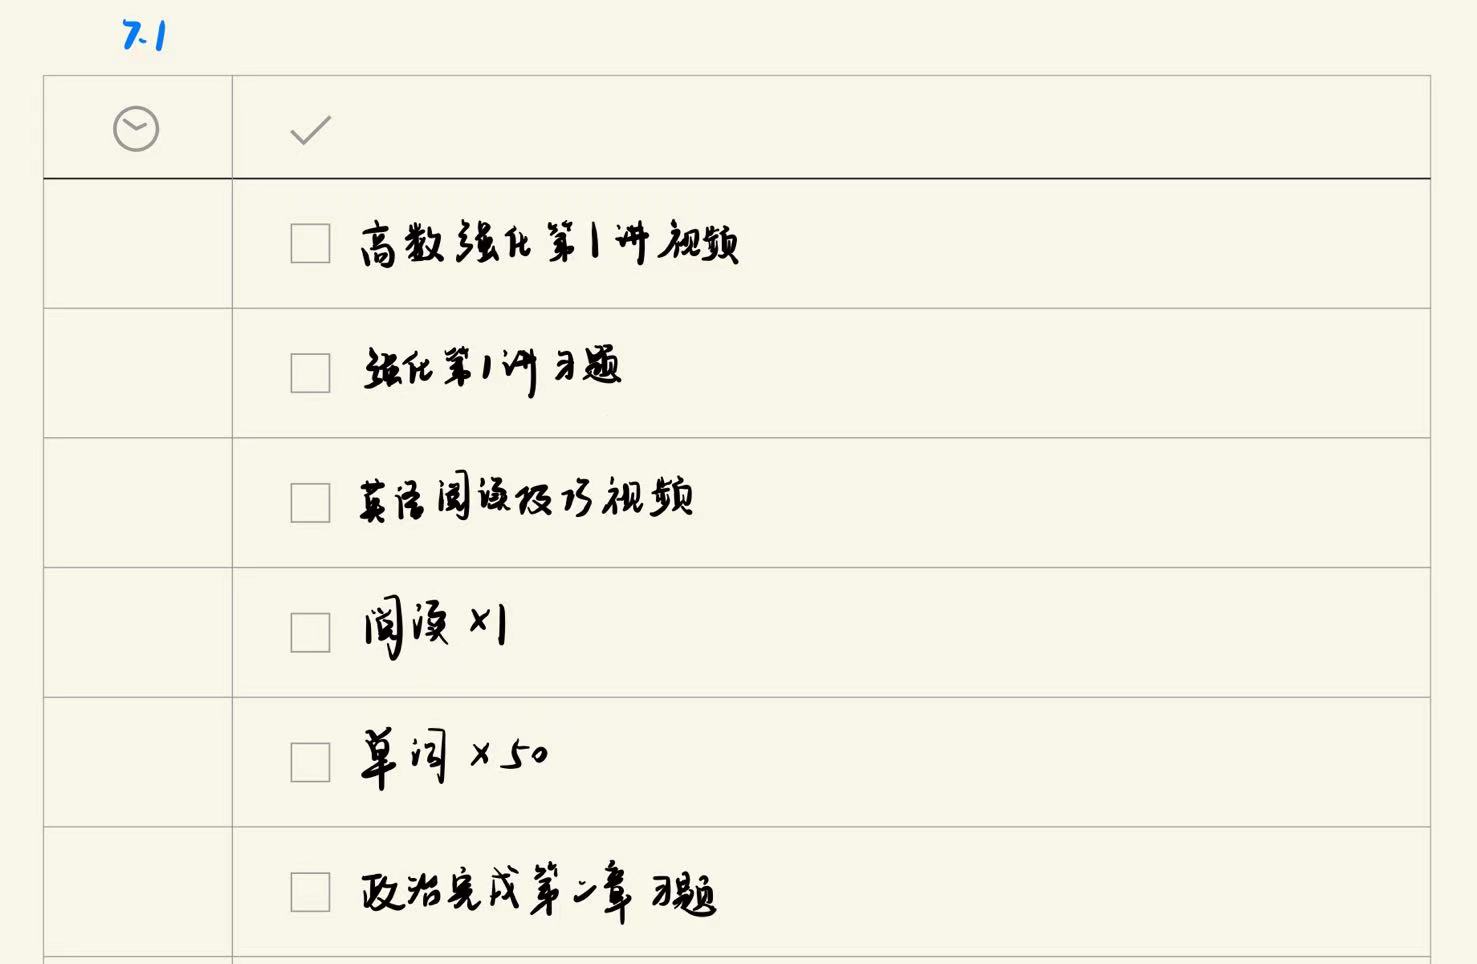 7.1
高数强化第1讲视频
强化第1讲习题
英语阅读技巧视频
阅读×1
单词×50
政治完成第二章习题